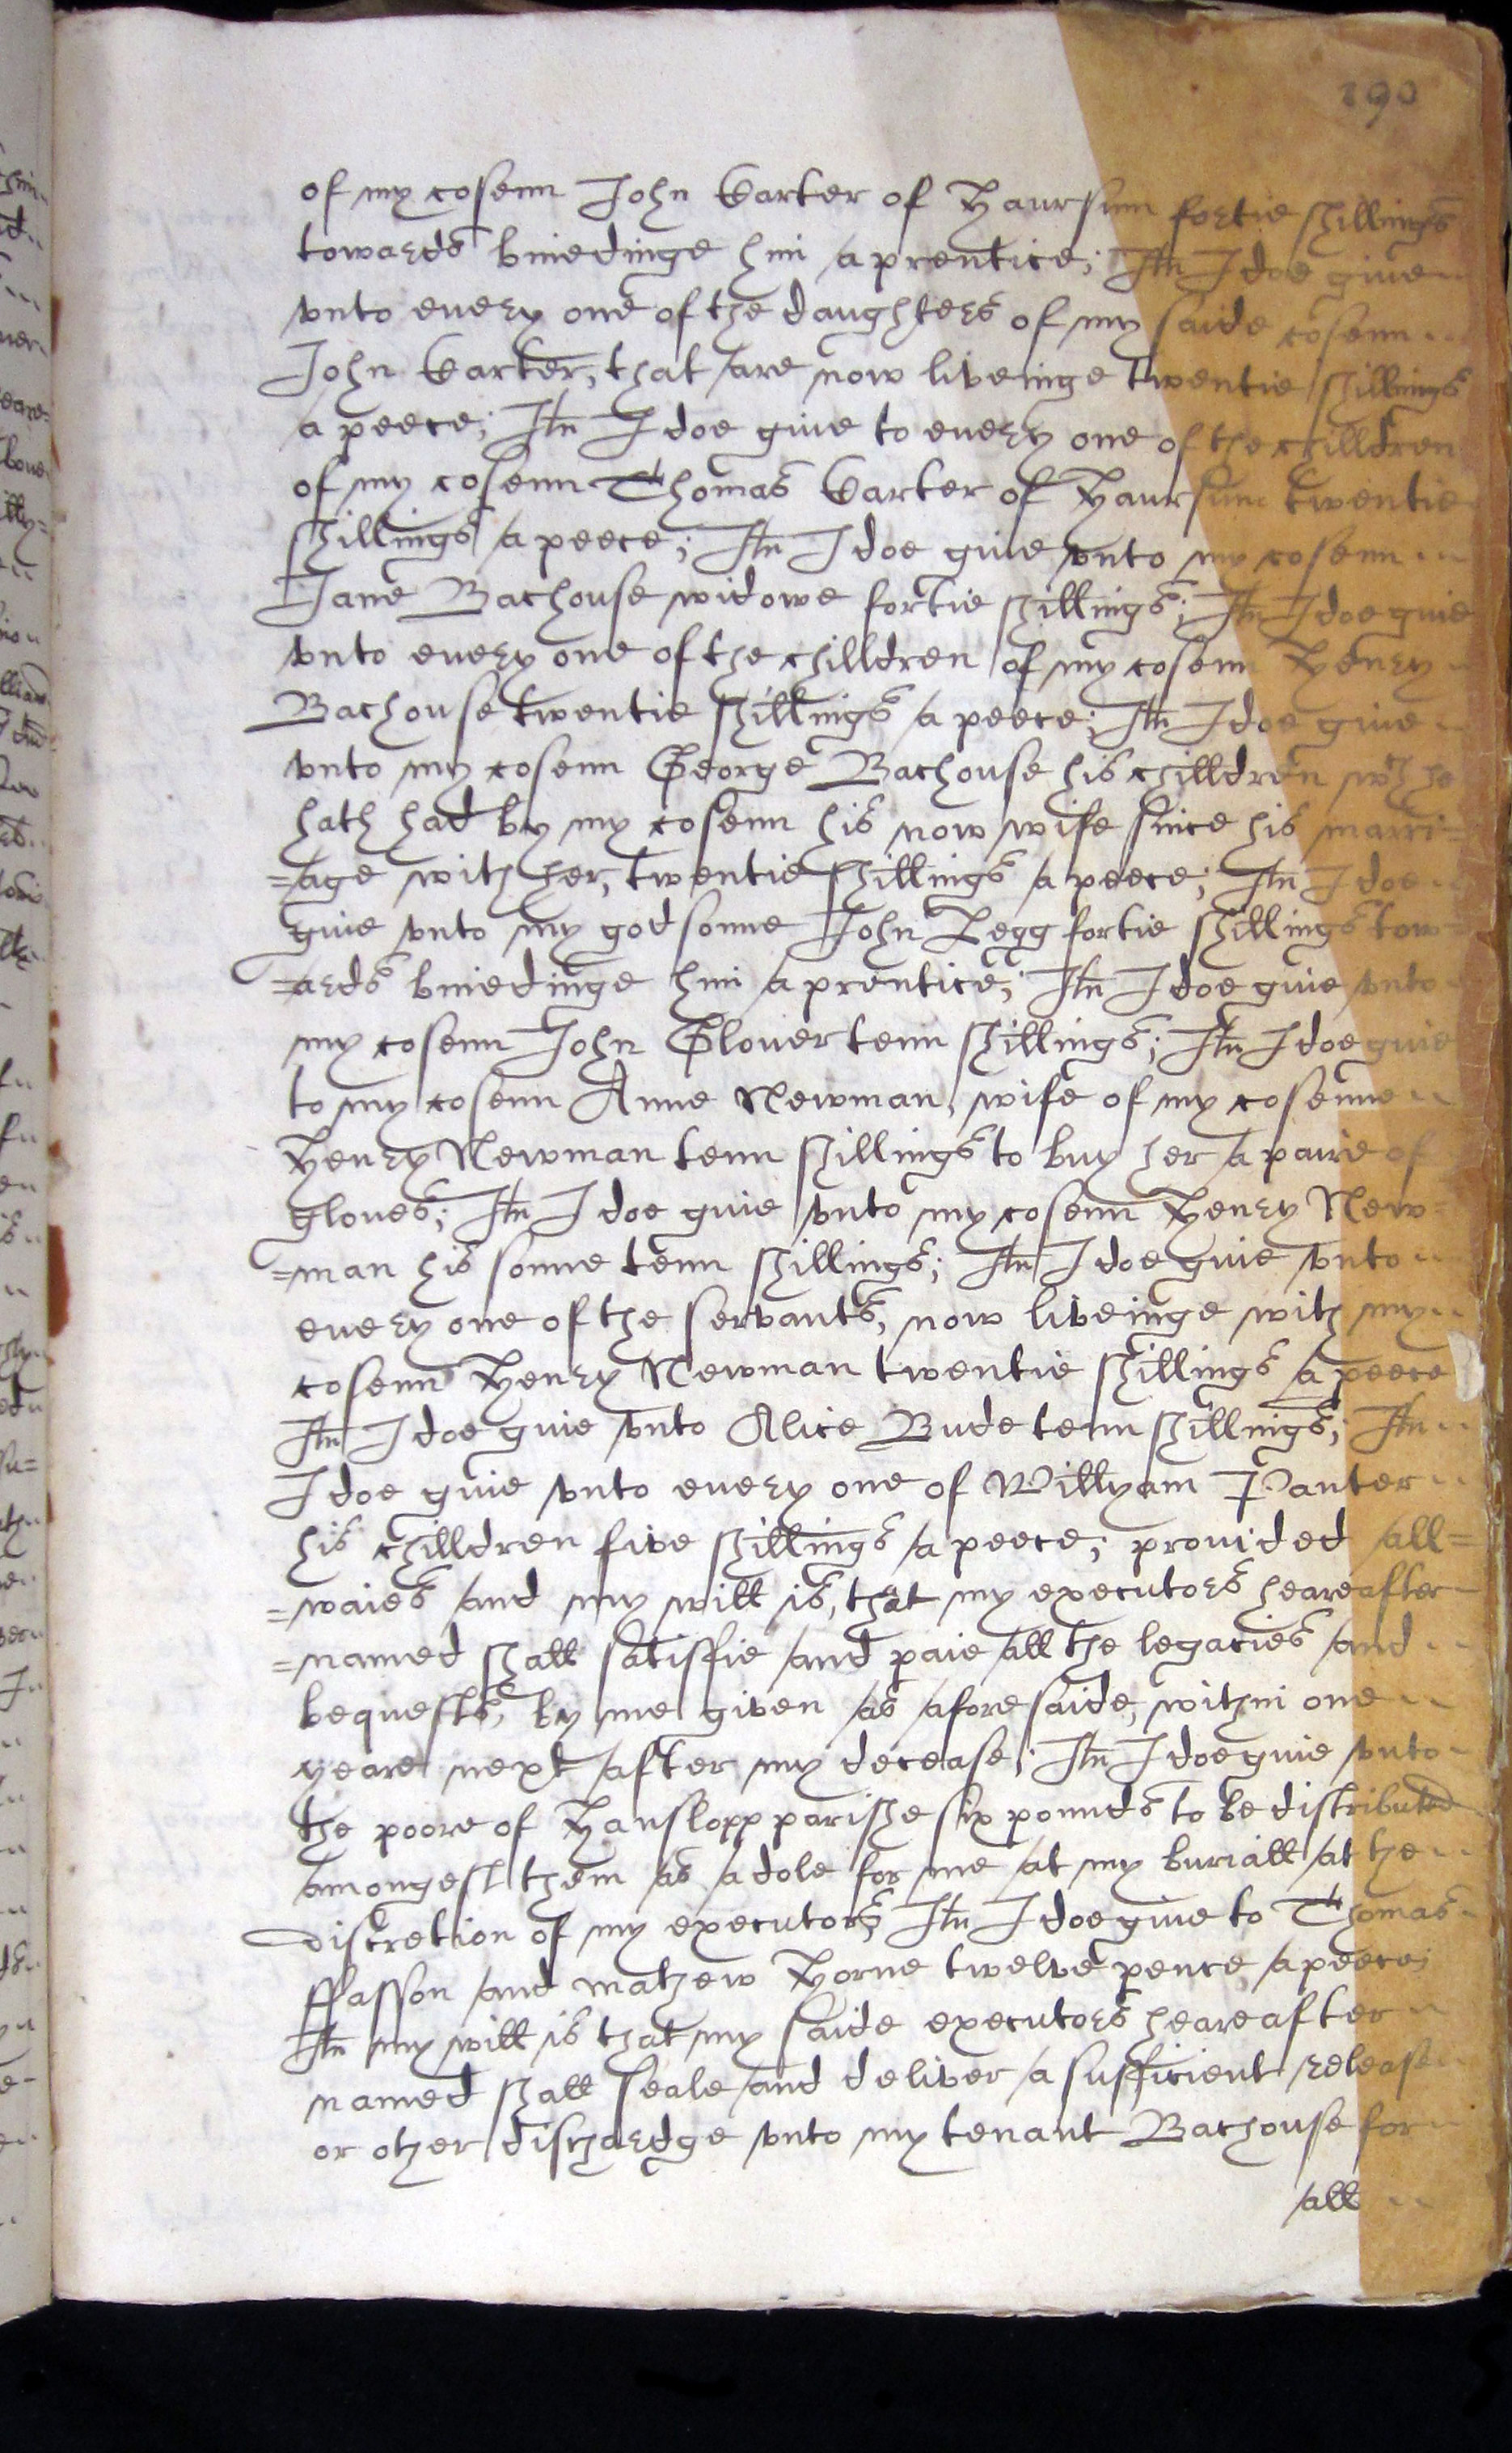 190
of my cosenn John Carter of Haursum fortie shillings
towards binedinge him a prentice; Itm I doe give
vnto every one of the daughters of my saide cosenn
John Carter, that are now liveinge twentie shillings
a peece; Itm I doe give to every one of the chilldren
of my cosenn Thomas Carter of Haursum twentie
shillings a peece; Itm I doe give vnto my cosenn
Jane Bachouse widowe fortie shillings; Itm I doe give
vnto every one of the chilldren of my cosenn Henry
Bachouse twentie shillings a peece; Itm I doe give
vnto my cosenn George Bachouse his chilldren wch he
hath had by my cosenn his now wife since his marri=
=age with her, twentie shillings a peece; Itm I doe
give vnto my godsonne John Legg fortie shillings tow=
=ards binedinge him a prentice; Itm I doe give vnto
my cosenn John Glover tenn shillings; Itm I doe give
to my cosenn Anne Newman, wife of my cosenne
Henry Newman tenn shillings to buy her a paire of
gloves; Itm I doe give vnto my cosenn Henry New=
=man his sonne tenn shillings; Itm I doe give vnto
every one of the servants, now liveinge with my
cosenn Henry Newman twentie shillings a peece
Itm I doe give vnto Alice Bude tenn shillings; Itm
I doe give vnto every one of Willyam Panter
his chilldren five shillings a peece; provided all=
=waies and my will is, that my executors heareafter
=named shall satisfie and paie all the legacies and
bequests, by me given as aforesaide, within one
yeare next after my decease; Itm I doe give vnto
the poore of Hanslopp parishe six pounds to be distributed
amongest them as a dole for me at my buriall at the
discretion of my executors; Itm I doe give to Thomas
ffasson and Mathew Horne twelve pence a peece;
Itm my will is that my saide executors heareafter
named shall seale and deliver a sufficient release
or other dischardge vnto my tenant Bachouse for
all